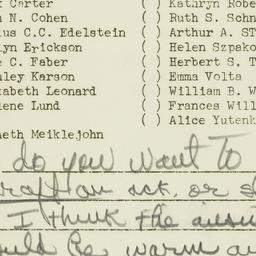 Carter ( ) Kathryn Robe
n N. Cohen ( ) Ruth S. Schn
us C.C. Edelstein ( ) Arthur A. ST
lyn Erickson ( ) Helen Szpako
e C. Faber ( ) Herbert S. T
nley Karson ( ) Emma Volta
zabeth Leonard ( ) William B. W
lene Lund ( ) Frances Will
( ) Alice Yutenk
neth Meiklejohn
do you want to
draft an ack. or s
I think the answ
ould be warm an